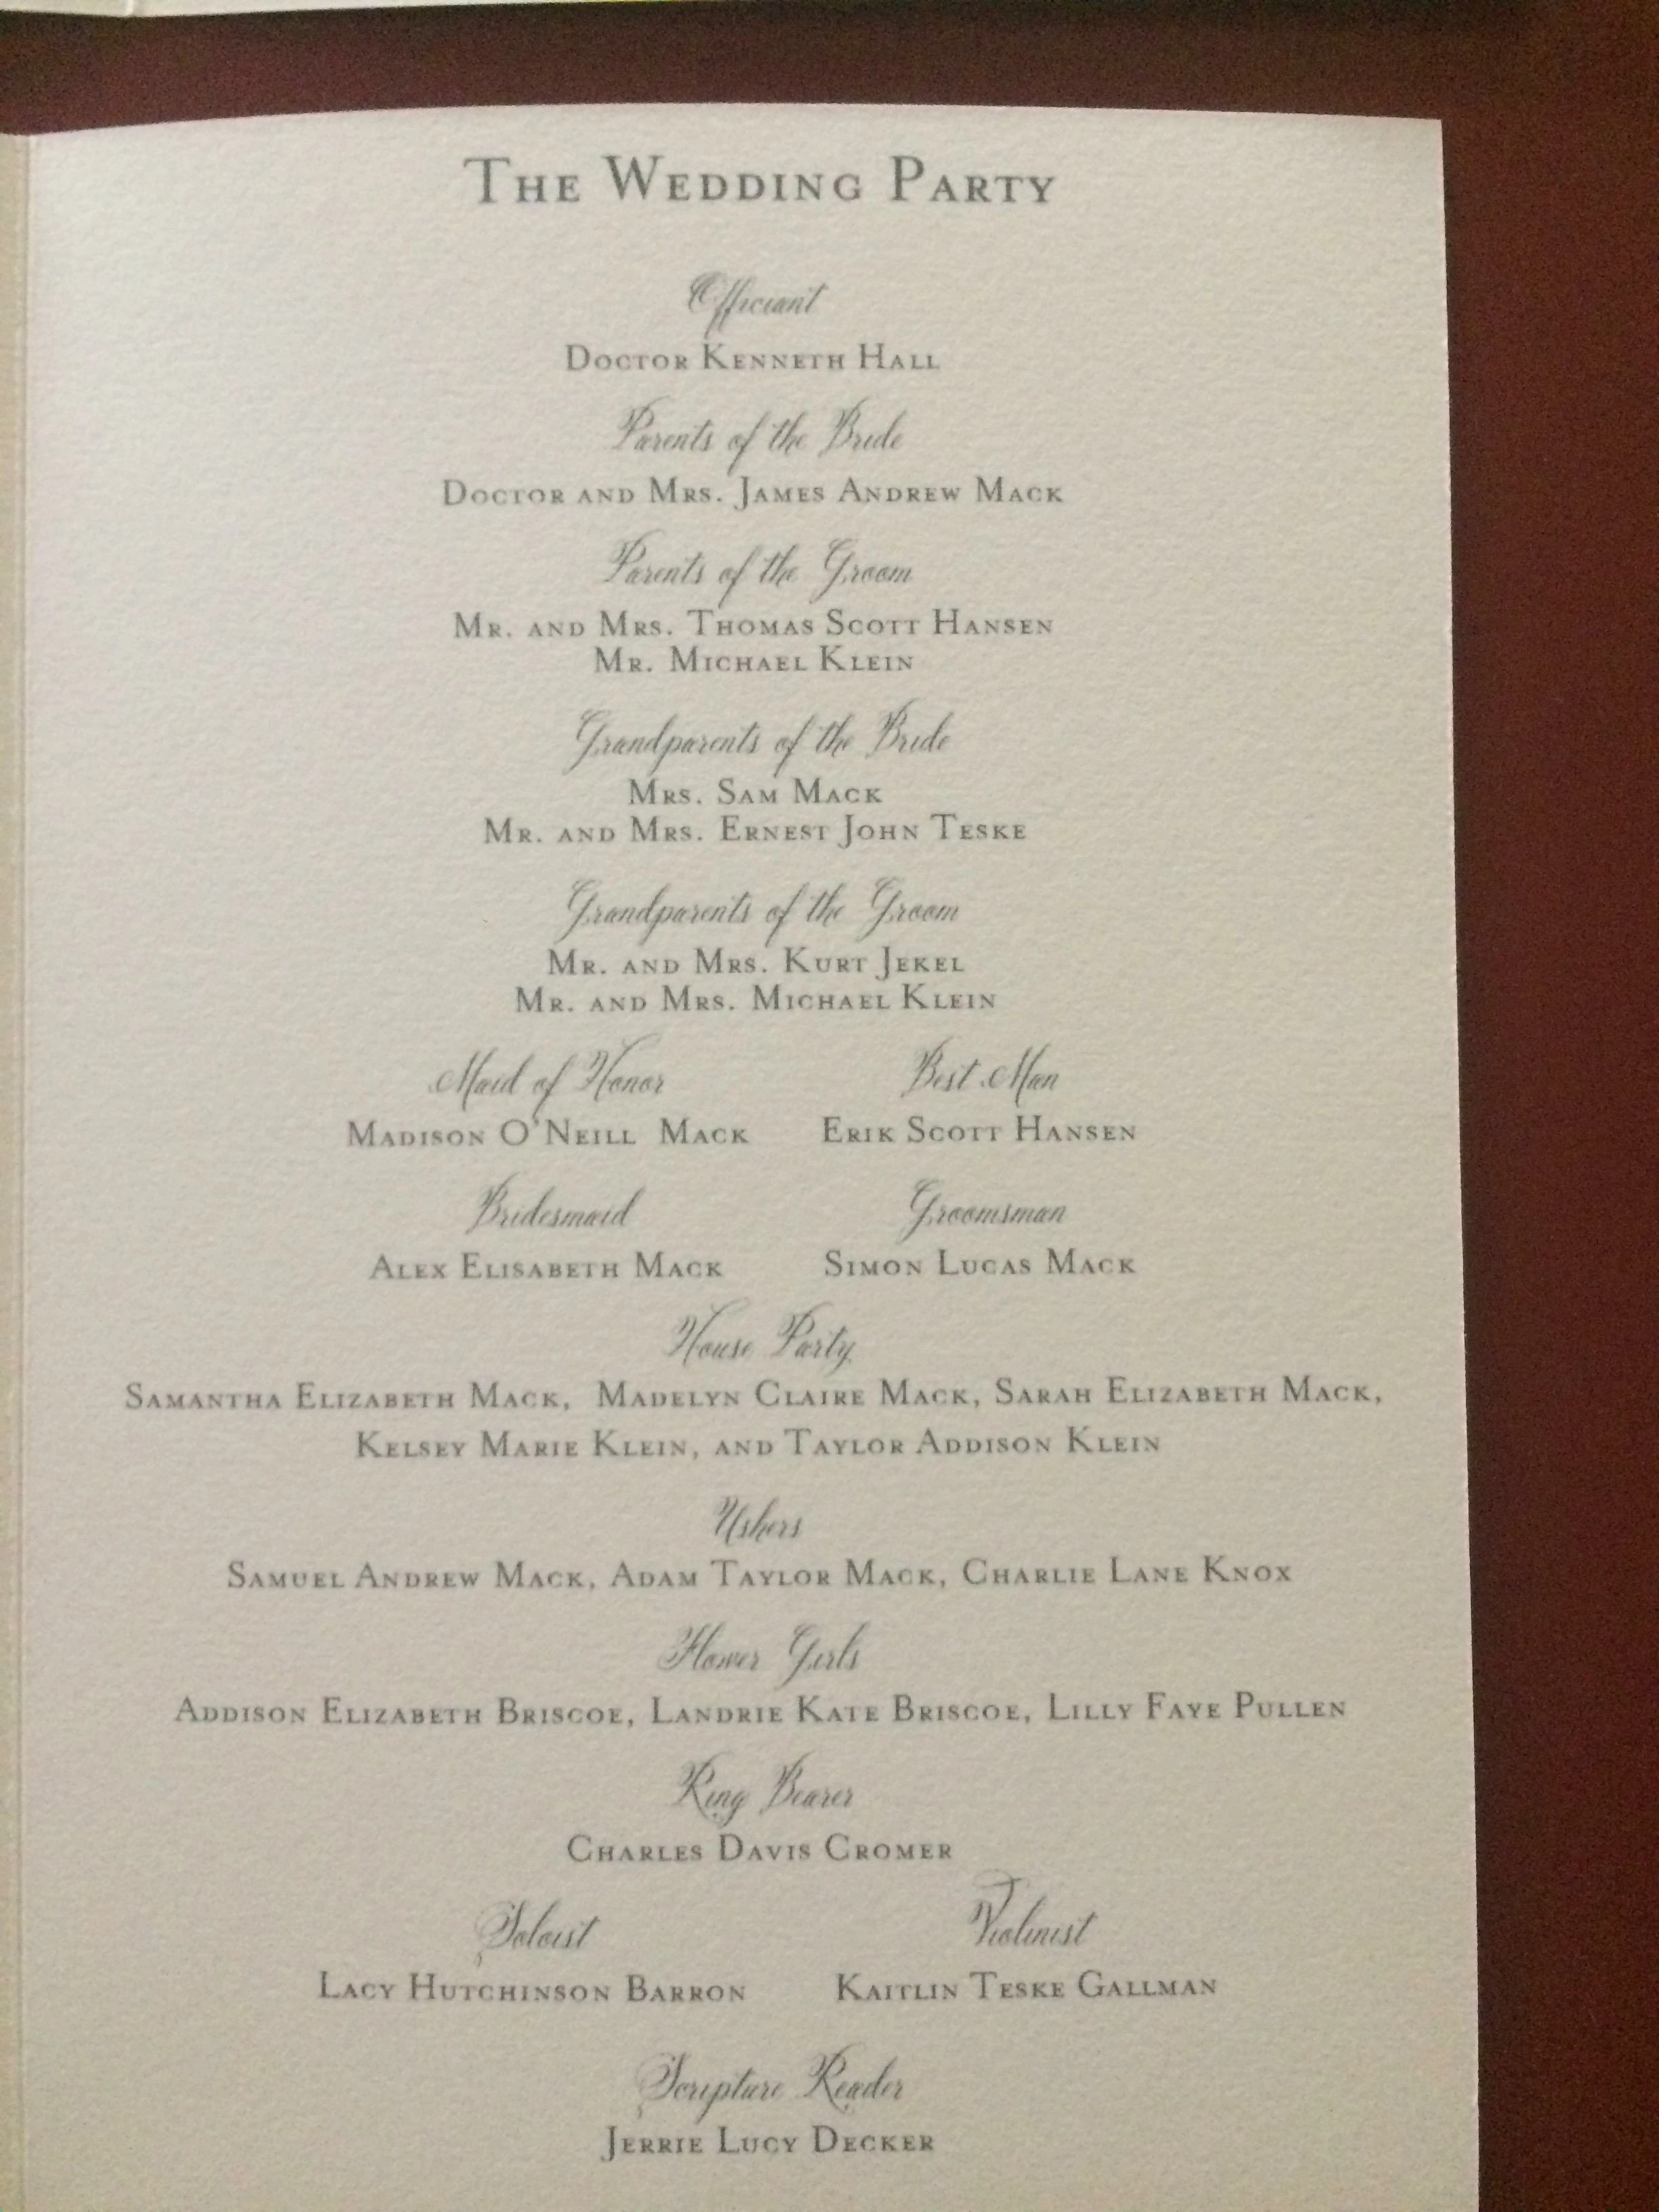 The Wedding Party
Officiant
Doctor Kenneth Hall
Parents of the Bride
Doctor and Mrs. James Andrew Mack
Parents of the Groom
Mr. and Mrs. Thomas Scott Hansen
Mr. Michael Klein
Grandparents of the Bride
Mrs. Sam Mack
Mr. and Mrs. Ernest John Teske
Grandparents of the Groom
Mr. and Mrs. Kurt Jekel
Mr. and Mrs. Michael Klein
Maid of Honor Best Man
Madison O'Neill Mack Erik Scott Hansen
Bridesmaid Groomsman
Alex Elisabeth Mack Simon Lucas Mack
House Party
Samantha Elizabeth Mack, Madelyn Claire Mack, Sarah Elizabeth Mack,
Kelsey Marie Klein, and Taylor Addison Klein
Ushers
Samuel Andrew Mack, Adam Taylor Mack, Charlie Lane Knox
Flower Girls
Addison Elizabeth Briscoe, Landrie Kate Briscoe, Lilly Faye Pullen
Ring Bearer
Charles Davis Cromer
Soloist Violinist
Lacy Hutchinson Barron Kaitlin Teske Gallman
Scripture Reader
Jerrie Lucy Decker